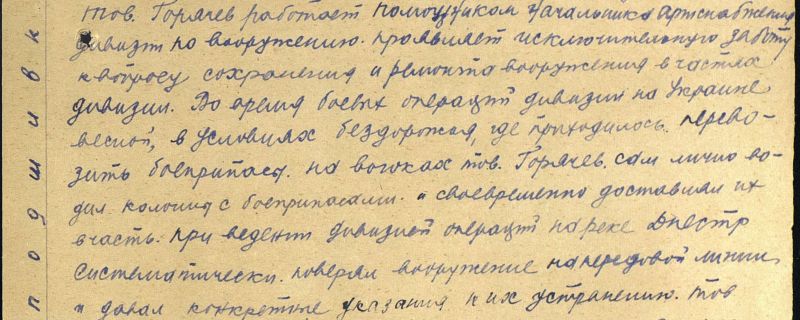 тов. Горячев работает помощником начальника артснабжения
дивизии по вооружению. проявляет исключительную заботу
к вопросу сохранения и ремонта вооружения в частях
дивизии. Во время боевых операций дивизии на Украине
весной, в условиях бездорожья, где приходилось. перево-
зить боеприпасы. на вьюках тов. Горячев. сам лично во-
дил колонны с боеприпасами. и своевременно доставлял их
в часть. при ведении дивизией операций на реке Днестр
систематически. поверял вооружение на передовой линии
и давал конкретные указания к их устранению. тов
подшивк